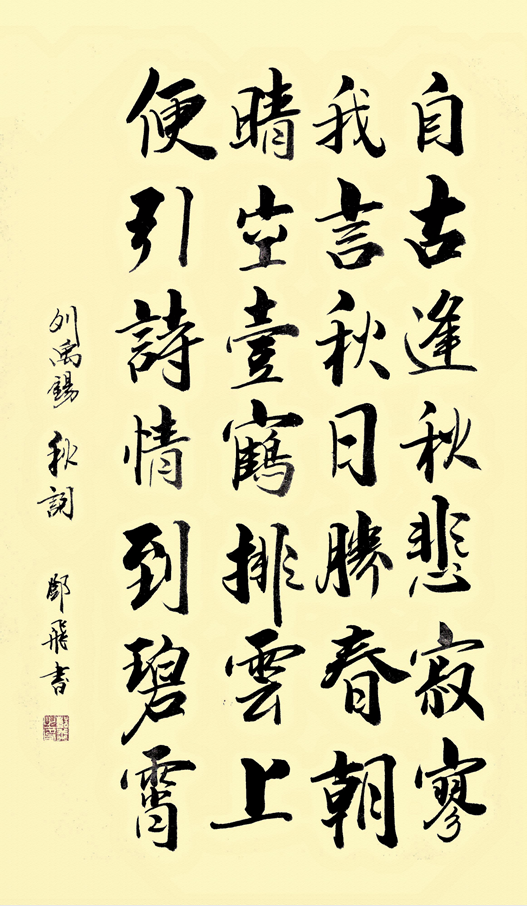 自古逢秋悲寂寥
我言秋日勝春朝
晴空壹鶴排雲上
便引詩情到碧霄
列禹錫 秋詞 飛書